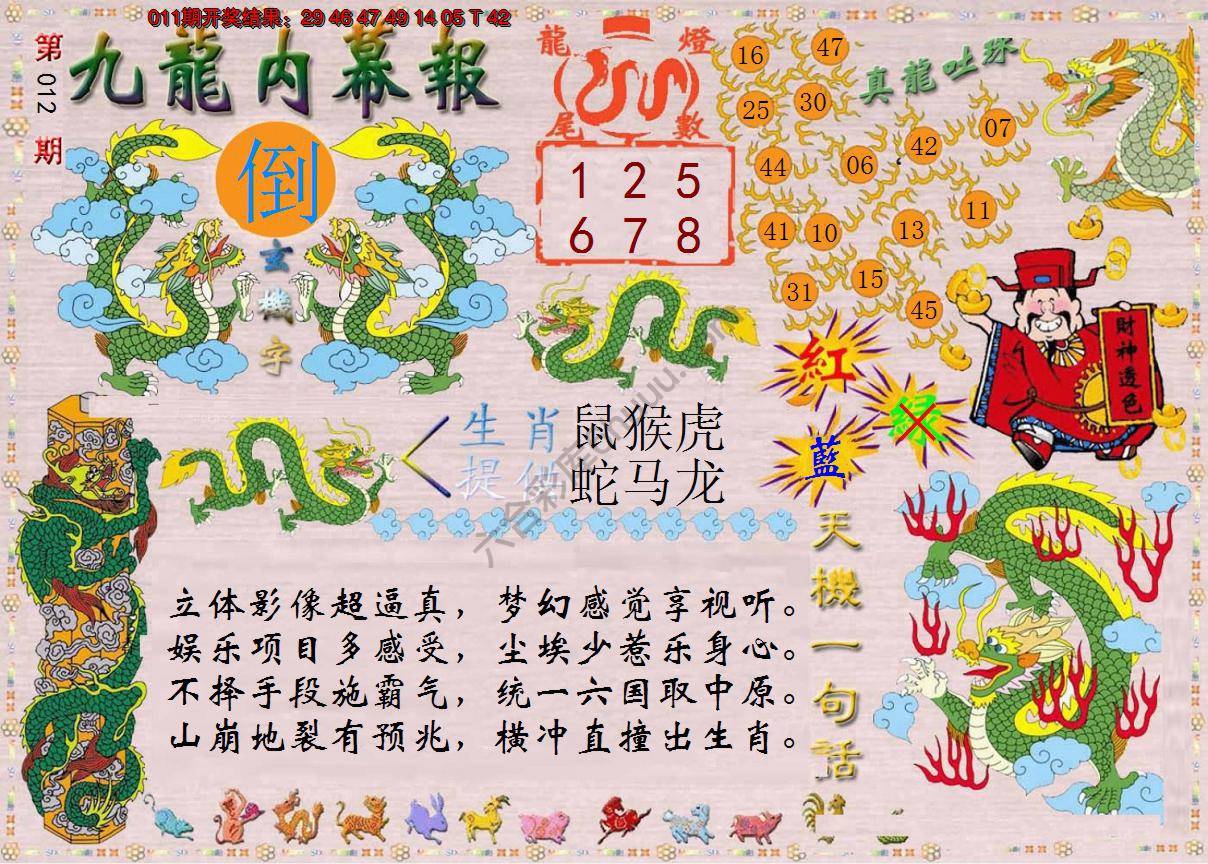 011期开奖结果：29 46 47 49 14 05 T 42
第012期
九龍内幕報
倒
玄機字
龍燈
尾數
1 2 5
6 7 8
真龍吐珠
16
47
25
30
44
06
42
07
41
10
13
11
31
15
45
財神透色
紅
绿
藍
生肖 鼠猴虎
提供 蛇马龙
天機一句话
立体影像超逼真，梦幻感觉享视听。
娱乐项目多感受，尘埃少惹乐身心。
不择手段施霸气，统一六国取中原。
山崩地裂有预兆，横冲直撞出生肖。